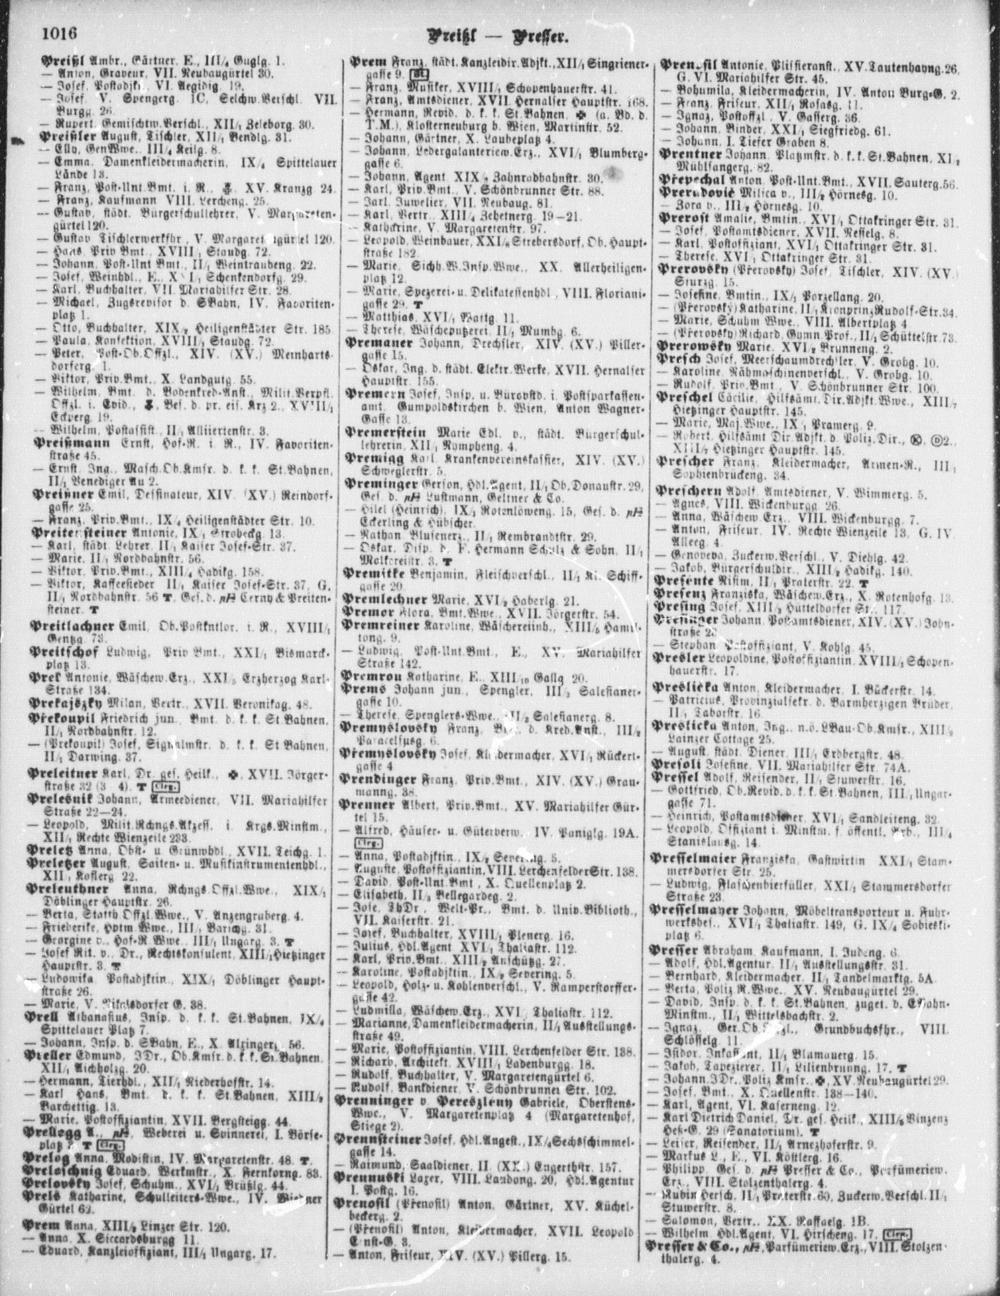 1016
Preißl — Presser.
Preißl Ambr., Gärtner, E., III/4 Guglg. 1.
— Anton, Graveur, VII. Neubaugürtel 30.
— Josef, Postadjkt., VI. Aegidig. 19.
— Josef, V. Spengerg. 1C, Selchw.Verschl. VII.
Burgg. 26.
— Rupert, Gemischtw.Verschl., XII/2 Zeleborg. 30.
Preißler August, Tischler, XII/1 Bendlg. 31.
— Elly, GenWwe., III/4 Keilg. 8.
— Emma, Damenkleidermacherin, IX/4 Spittelauer
Lände 13.
— Franz, Post-Unt.Bmt. i. R., XV. Kranzg 24.
— Franz, Kaufmann VIII. Lercheng. 25.
— Gustav, städt. Bürgerschullehrer, V. Margareten-
gürtel 120.
— Gustav Tischlerwerkfhr., V. Margaretengürtel 120.
— Hans, Priv Bmt., XVIII/1 Staudg. 72.
— Johann, Post-Unt.Bmt., II/1 Weintraubeng. 22.
— Josef, Weinhdl., E., Schenkendorfg. 29.
— Karl, Buchhalter, VII. Mariahilfer Str. 28.
— Michael, Zugsrevisor d. SBahn, IV. Favoriten-
platz 1.
— Otto, Buchhalter, XIX/2 Heiligenstädter Str. 185.
— Paula, Konfektion, XVIII/1 Staudg. 72.
— Peter, Post-Ob.Offzl., XIV. (XV.) Meinharts-
dorferg. 1.
— Viktor, Priv.Bmt., X. Landgutg. 55.
— Wilhelm, Bmt. d. Bodenkred-Anst., Milit.Verpfl.
Offzl. i. Evid., Bes. d. pr. eis. Krz 2., XVII/1
Eckperg. 19.
— Wilhelm, Postassist., II/1 Alliiertenstr. 3.
Preißmann Ernst, Hof-R. i. R., IV. Favoriten-
straße 45.
— Ernst, Ing., Masch.Ob.Kmsr. d. k. k. St.Bahnen,
II/1 Venediger Au 2.
Preißner Emil, Dessinateur, XIV. (XV.) Reindorf-
gasse 25.
— Franz, Priv.Bmt., IX/4 Heiligenstädter Str. 10.
Preitensteiner Antonie, IX/1 Strobeckg. 13.
— Karl, städt. Lehrer, II/1 Kaiser Josef-Str. 37.
— Marie, II/1 Nordbahnstr. 56.
— Viktor, Priv.Bmt., XIII/4 Hadikg. 158.
— Viktor, Kaffeesieder, II/1 Kaiser Josef-Str. 37, G.
II/1 Nordbahnstr. 56 T. Ges. d. pH Cerny & Preiten-
steiner. T
Preitlachner Emil, Ob.Postkntlor. i. R., XVIII/1
Gentzg. 73.
Preitschof Ludwig, Priv Bmt., XXI/1 Bismarck-
platz 13.
Prek Antonie, Wäschew.Erz., XXI/5 Erzherzog Karl-
Straße 134.
Prekajszky Milan, Vertr., XVII. Veronikag. 48.
Prekoupil Friedrich jun., Bmt. d. k. k St.Bahnen,
II/1 Nordbahnstr. 12.
— (Prekoupil) Josef, Signalmstr. d. k. k. St Bahnen,
II/1 Darwing. 37.
Preleitner Karl, Dr. ges. Heilk., XVII. Jörger-
straße 32 (3–4). T Cleg.
Prelesnik Johann, Armeediener, VII. Mariahilfer
Straße 22—24.
— Leopold, Milit.Rchngs.Akzess. i. Krgs.Minstm.,
XII/1 Rechte Wienzeile 233.
Preletz Anna, Obst- u. Grünwhdl., XVII. Teichg. 1.
Preletzer August, Saiten- u. Musikinstrumentenhdl.,
XII/1 Koflerg 22.
Preleuthner Anna, Rchngs.Offzl.Wwe., XIX/1
Döblinger Hauptstr. 26.
— Berta, Statth Offzl.Wwe., V. Anzengruberg. 4.
— Friederike, Hptm Wwe., III/1 Barichg. 31.
— Georgine v., Hof-R Wwe., III/1 Ungarg. 3. T
— Josef Rit. v., Dr., Rechtskonsulent, XIII/1 Hietzinger
Hauptstr. 3. T
— Ludowika Postadjktin., XIX/1 Döblinger Haupt-
straße 26.
— Marie, V. Nikolsdorfer G. 38.
Prell Athanasius, Insp. d. k. k. St.Bahnen, IX/4
Spittelauer Platz 7.
— Johann, Insp. d. SBahn, E., X. Alxingerg. 56.
Preller Edmund, JDr., Ob.Kmsr. d. k. k. St.Bahnen,
XII/1 Aichholzg. 20.
— Hermann, Tierhdl., XII/1 Niederhofstr. 14.
— Karl Hans, Bmt. d. k. k. St.Bahnen, XIII/4
Barchettig. 13.
— Marie, Postoffiziantin, XVII. Bergsteigg. 44.
Prellogg A., pH, Weberei u. Spinnerei, I. Börse-
platz T Cleg.
Prelog Anna, Modistin, IV. Margaretenstr. 48. T
Preloschnig Eduard, Werkmstr., X. Fernkorng. 83.
Prelovsky Josef, Schuhm., XVI/2 Brüßlg. 44.
Prels Katharine, Schulleiters-Wwe., IV. Wiedner
Gürtel 62.
Prem Anna, XIII/4 Linzer Str. 120.
— Anna, X. Siccardsburgg 11.
— Eduard, Kanzleioffiziant, III/4 Ungarg. 17.
Prem Franz, städt. Kanzleidir.Adjkt., XII/4 Singriener-
gasse 9.
— Franz, Musiker, XVIII/1 Schopenhauerstr. 41.
— Franz, Amtsdiener, XVII. Hernalser Hauptstr. 168.
— Hermann, Revid. d. k. k. St.Bahnen, (a. Bd. d.
T.M.), Klosterneuburg b. Wien, Martinstr. 52.
— Johann, Gärtner, X. Laubeplatz 4.
— Johann, Ledergalanteriew.Erz., XVI/1 Blumberg-
gasse 6.
— Johann, Agent XIX/4 Zahnradbahnstr. 30.
— Karl, Priv.Bmt., V. Schönbrunner Str. 88.
— Karl, Juwelier, VII. Neubaug. 81.
— Karl, Vertr., XIII/4 Zehetnerg. 19—21.
— Katharine, V. Margaretenstr. 97.
— Leopold, Weinbauer, XXI/4 Strebersdorf, Ob. Haupt-
straße 182.
— Marie, Sichh.W.Insp.Wwe., XX. Allerheiligen-
platz 12.
— Marie, Spezerei- u. Delikatessenhdl., VIII. Floriani-
gasse 29. T
— Matthias, XVI/1 Wattg. 11.
— Therese, Wäscheputzerei, II/1 Mumbg. 6.
Premaner Johann, Drechsler, XIV. (XV.) Piller-
gasse 15.
— Oskar, Ing. d. städt. Elektr.Werke, XVII. Hernalser
Hauptstr. 155.
Premern Josef, Insp. u. Bürovstd. i. Postsparkassen-
amt, Gumpoldskirchen b. Wien, Anton Wagner-
Gasse 13.
Premerstein Marie Edl. v., städt. Bürgerschul-
lehrerin, XII/1 Nympheng. 4.
Premigg Karl, Krankenvereinskassier, XIV. (XV.)
Schweglerstr. 5.
Preminger Gerson, Hdl.Agent, II/1 Ob. Donaustr. 29,
Ges. d. pH Lustmann, Geltner & Co.
— Hilel (Heinrich), IX/1 Rotenlöweng. 15, Ges. d. pH
Eckerling & Hübscher.
— Nathan Blusenerz., II/1 Rembrandtstr. 29.
— Oskar, Disp. d. F. Hermann Scholz & Sohn, II/1
Molkereistr. 3. T
Premitke Benjamin, Fleischverschl., II/1 Kl. Schiff-
gasse 20
Premlechner Marie, XVI/1 Haberlg. 21.
Premor Flora, Bmt.Wwe., XVII. Jörgerstr. 54.
Premreiner Karoline, Wäschereiinh., XIII/6 Hamil-
tong. 9.
— Ludwig, Post-Unt.Bmt., E., XV. Mariahilfer
Straße 142.
Premrou Katharine, E., XIII/10 Gallg. 20.
Prems Johann jun., Spengler, III/2 Salesianer-
gasse 10.
— Therese, Spenglers-Wwe., III/2 Salesianerg. 8.
Premyslovsky Franz, Bmt. d. Kred.Anst., III/2
Paracelsusg. 6.
Přemyslovsky Josef, Kleidermacher, XVI/1 Rückert-
gasse 4
Prendinger Franz, Priv.Bmt., XIV. (XV.) Grau-
manng. 38.
Prenner Albert, Priv.Bmt., XV. Mariahilfer Gür-
tel 15.
— Alfred, Häuser- u. Güterverw., IV. Paniglg. 19A.
Cleg.
— Anna, Postadjktin., IX/2 Severing. 5.
— Auguste, Postoffiziantin, VIII. Lerchenfelder Str. 138.
— David, Post-Unt.Bmt., X. Quellenplatz 2.
— Elisabeth, II/2 Bellegardeg. 2.
— Jose, ThDr., Welt-Pr., Bmt. d. Univ.Biblioth.,
VII. Kaiserstr. 21.
— Josef, Buchhalter, XVIII/1 Plenerg. 16.
— Julius, Hdl.Agent XVI/1 Thaliastr. 112.
— Karl, Priv.Bmt. XIII/2 Anschützg. 27.
— Karoline, Postadjktin., IX/2 Severing. 5.
— Leopold, Holz- u. Kohlenverschl., V. Ramperstorffer-
gasse 42.
— Ludmilla, Wäschew.Erz., XVI/1 Thaliastr. 112.
— Marianne, Damenkleidermacherin, II/1 Ausstellungs-
straße 49.
— Marie, Postoffiziantin, VIII. Lerchenfelder Str. 138.
— Richard, Architekt, XVIII/1 Ladenburgg. 18.
— Rudolf, Buchhalter, V. Margaretengürtel 6.
— Rudolf, Bankdiener, V. Schönbrunner Str. 102.
Prenninger v. Pereszlény Gabriele, Oberstens-
Wwe., V. Margaretenplatz 4 (Margaretenhof,
Stiege 2).
Prennsteiner Josef, Hdl.Angest., IX/4 Sechsschimmel-
gasse 14.
— Raimund, Saaldiener, II. (XX.) Engerthstr. 157.
Prennuski Lazer, VIII. Laudong. 20, Hdl.Agentur
I. Postg. 16.
Prenosil (Přenosil) Anton, Gärtner, XV. Küchel-
beckerg. 2.
— (Přenosil) Anton, Kleidermacher, XVII. Leopold
Ernst-G. 3.
— Anton, Friseur, XIV. (XV.) Pillerg. 15.
Prenosil Antonie, Plisseeranst., XV. Tautenhayng. 26,
G. VI. Mariahilfer Str. 45.
— Bohumila, Kleidermacherin, IV. Anton Burg-G. 2.
— Franz, Friseur, XII/1 Rosasg. 11.
— Ignaz, Postoffzl., V. Gasserg. 36.
— Johann, Binder, XXI/1 Siegfriedg. 61.
— Johann, I. Tiefer Graben 8.
Prentner Johann, Platzmstr. d. k. k. St.Bahnen, XI/2
Mühlsangerg. 82.
Přepechal Anton, Post-Unt.Bmt., XVII. Sauterg. 56.
Preradović Milica v., III/2 Hörnesg. 10.
— Zora v., III/2 Hörnesg. 10.
Prerost Amalie, Bmtin., XVI/1 Ottakringer Str. 31.
— Josef, Postamtsdiener, XVII. Nesselg. 8.
— Karl, Postoffiziant, XVI/1 Ottakringer Str. 31.
— Therese, XVI/1 Ottakringer Str. 31.
Prerovsky (Přerovský) Josef, Tischler, XIV. (XV.)
Sturzg. 15.
— Josefine, Bmtin., IX/1 Porzellang. 20.
— (Přerovský) Katharine, II/1 Kronprinz Rudolf-Str. 34.
— Marie, Schuhm Wwe., VIII. Albertplatz 4
— (Přerovský) Richard, Gymn Prof., II/2 Schüttelstr. 73.
Prerowsky Marie, XVI/2 Brunneng. 2.
Presch Josef, Meerschaumdrechsler, V. Grohg. 10.
— Karoline, Nähmaschinenverschl., V. Grohg. 10.
— Rudolf, Priv.Bmt., V. Schönbrunner Str. 100.
Preschel Cäcilie, Hilfsämt.Dir.Adjkt.Wwe., XIII/1
Hietzinger Hauptstr. 145.
— Marie, Maj.Wwe., IX/1 Pramerg. 9.
— Robert, Hilfsämt Dir Adjkt. d. Poliz.Dir.,
XIII/1 Hietzinger Hauptstr. 145.
Prescher Franz, Kleidermacher, Armen-R., III/1
Sophienbrückeng. 34.
Preschern Adolf, Amtsdiener, V. Wimmerg. 5.
— Agnes, VIII. Wickenburgg. 26.
— Anna, Wäschew Erz., VIII. Wickenburgg. 7.
— Anton, Friseur, IV. Rechte Wienzeile 13, G. IV.
Alleeg. 4.
— Genoveva, Zuckerw.Verschl., V. Diehlg. 42.
— Jakob, Bürgerschuldir., XIII/2 Hadikg. 140.
Presente Nisim, II/1 Praterstr. 22. T
Presenz Franziska, Wäschew.Erz., X. Rotenhofg. 13.
Presing Josef, XIII/3 Hütteldorfer Str. 117.
Presinger Johann, Postamtsdiener, XIV. (XV.) John-
straße
— Stephan Postoffiziant, V. Kohlg. 45.
Presler Leopoldine, Postoffiziantin, XVIII/1 Schopen-
hauerstr. 17.
Preslicka Anton, Kleidermacher, I. Bäckerstr. 14.
— Patricius, Provinzialsekr. d. Barmherzigen Brüder,
II/1 Taborstr. 16.
Preslicka Anton, Ing., n.ö. LBau-Ob.Kmsr., XIII/1
Lainzer Cottage 25.
— August, städt. Diener, III/1 Erdbergstr. 48.
Presoli Josefine, VII. Mariahilfer Str. 74A.
Pressel Adolf, Reisender, II/1 Stuwerstr. 16.
— Gottfried, Ob.Revid. d. k. k. St.Bahnen, III/1 Ungar-
gasse 71.
— Heinrich, Postamtsdiener, XVI/1 Sandleiteng. 32.
— Leopold, Offiziant i. Minstm. f. öffentl. Arb., III/4
Stanislausg. 14.
Presselmaier Franziska, Gastwirtin, XXI/4 Stam-
mersdorfer Str. 25.
— Ludwig, Flaschenbierfüller, XXI/1 Stammersdorfer
Straße 23.
Presselmayer Johann, Möbeltransporteur u. Fuhr-
werksbes., XVI/1 Thaliastr. 149, G. IX/4 Sobieski-
platz 6.
Presser Abraham, Kaufmann, I. Judeng. 6.
— Adolf, Hdl.Agentur, II/1 Ausstellungsstr. 31.
— Bernhard, Kleidermacher, II/1 Tandelmarktg. 5A
— Berta, Poliz R.Wwe., XV. Neubaugürtel 29.
— David, Insp. d. k. k. St.Bahnen, zuget. d. Eisbahn-
Minstm., II/2 Wittelsbachstr. 2.
— Ignaz, Ger.Ob.Offzl., Grundbuchsfhr., VIII.
Schlösselg. 11.
— Isidor, Inkassant, II/1 Blamauerg. 15.
— Jakob, Tapezierer, II/1 Lilienbrunng. 17. T
— Johann, JDr., Poliz Kmsr., XV. Neubaugürtel 29.
— Josef, Bmt., X. Quellenstr. 138—140.
— Karl, Agent, VI. Kaserneng. 12.
— Karl Dietrich Daniel, Dr. ges. Heilk., XIII/4 Vinzenz
Heß-G. 29 (Sanatorium). T
— Leiser, Reisender, II/1 Arnezhoferstr. 9.
— Markus L., E., VI. Köstlerg. 16.
— Philipp, Ges. d. pH Presser & Co., Parfümeriew.
Erz., VIII. Stolzenthalerg. 4.
— Rubin Hersch, II/1 Praterstr. 60, Zuckerw.Verschl. II/1
Stuwerstr. 8.
— Salomon, Vertr., XX. Raffaelg. 1B.
— Wilhelm, Hdl.Agent, VI. Hirscheng. 17. Cleg.
Presser & Co., pH, Parfümeriew.Erz., VIII. Stolzen-
thalerg. 4.